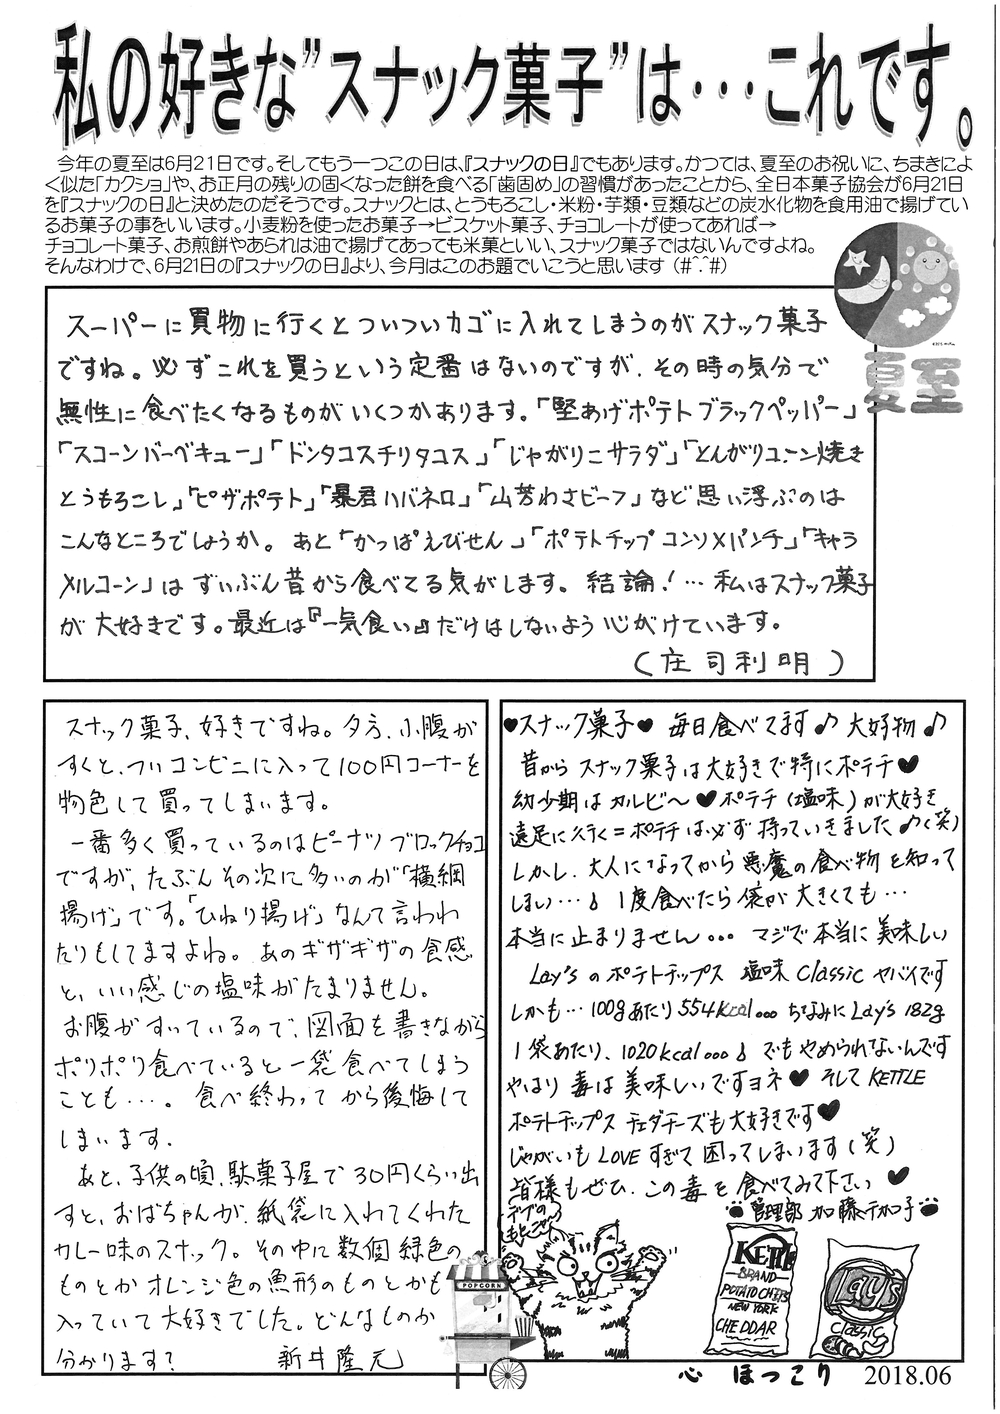 私の好きな”スナック菓子”は・・・これです。
今年の夏至は6月21日です。そしてもう一つこの日は、『スナックの日』でもあります。かつては、夏至のお祝いに、ちまきによ
く似た「カクショ」や、お正月の残りの固くなった餅を食べる「歯固め」の習慣があったことから、全日本菓子協会が6月21日
を『スナックの日』と決めたのだそうです。スナックとは、とうもろこし・米粉・芋類・豆類などの炭水化物を食用油で揚げてい
るお菓子の事をいいます。小麦粉を使ったお菓子→ビスケット菓子、チョコレートが使ってあれば→
チョコレート菓子、お煎餅やあられは油で揚げてあっても米菓といい、スナック菓子ではないんですよね。
そんなわけで、6月21日の『スナックの日』より、今月はこのお題でいこうと思います (#^.^#)
夏至
スーパーに買物に行くとついついカゴに入れてしまうのがスナック菓子
ですね。必ずこれを買うという定番はないのですが、その時の気分で
無性に食べたくなるものがいくつかあります。「堅あげポテトブラックペッパー」
「スコーンバーベキュー」「ドンタコスチリタコス」「じゃがりこサラダ」「とんがりコーン焼き
とうもろこし」「ピザポテト」「暴君ハバネロ」「山芳わさビーフ」など思い浮ぶのは
こんなところでしょうか。あと「かっぱえびせん」「ポテトチップコンソメパンチ」「キャラ
メルコーン」はずいぶん昔から食べてる気がします。結論!…私はスナック菓子
が大好きです。最近は『一気食い』だけはしないよう心がけています。
(庄司利明)
スナック菓子、好きですね。夕方、小腹が
すくと、ついコンビニに入って100円コーナーを
物色して買ってしまいます。
一番多く買っているのはピーナツブロックチョコ
ですが、たぶんその次に多いのが「横綱
揚げ」です。「ひねり揚げ」なんて言われ
たりもしてますよね。あのギザギザの食感
と、いい感じの塩味がたまりません。
お腹がすいているので、図面を書きながら
ポリポリ食べていると一袋食べてしまう
ことも…。食べ終わってから後悔して
しまいます。
あと、子供の頃、駄菓子屋で30円くらい出
すと、おばちゃんが、紙袋に入れてくれた
カレー味のスナック。その中に数個緑色の
ものとかオレンジ色の魚形のものとかも
入っていて大好きでした。どんなものか
分かります?　新井隆元
POPCORN
♥スナック菓子♥ 毎日食べてます♪ 大好物♪
昔からスナック菓子は大好きで特にポテチ♥
幼少期はカルビ〜♥ポテチ(塩味)が大好き
遠足に行く=ポテチは必ず持っていきました♪(笑)
しかし、大人になってから悪魔の食べ物を知って
しまい…♪ 1度食べたら袋が大きくても…
本当に止まりません… マジで本当に美味しい
Lay'sのポテトチップス 塩味 classic ヤバイです
しかも…100gあたり554kcal… ちなみにLay's 182g
1袋あたり、1020kcal…♪ でもやめられないんです
やはり毒は美味しいですヨネ♥ そしてKETTLE
ポテトチップス チェダチーズも大好きです♥
じゃがいもLOVEすぎて困ってしまいます(笑)
皆様もぜひ、この毒を食べてみて下さい♥
管理部 加藤
デブの
KETTLE
BRAND
POTATO CHIPS
NEW YORK
CHEDDAR
Lay's
classic
心 ほっこり 2018.06